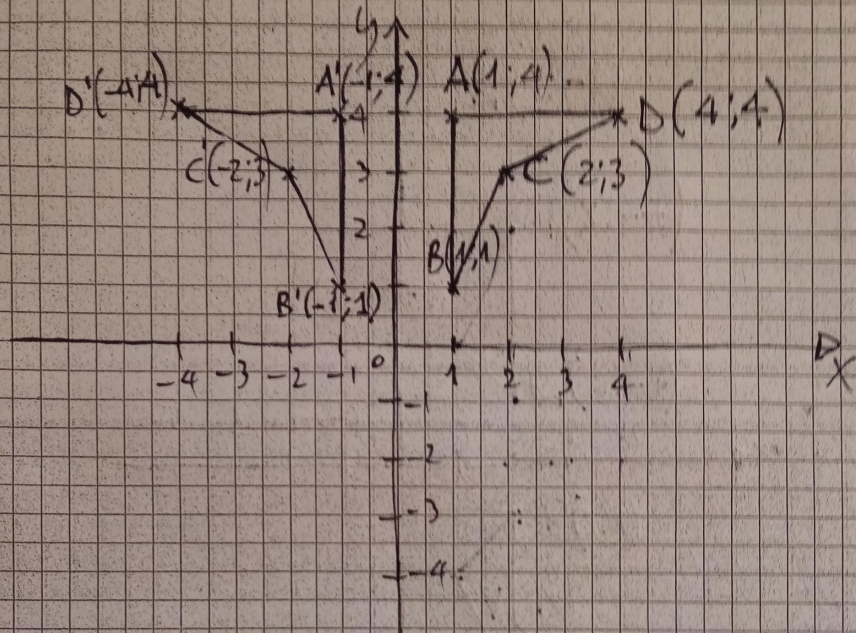 y
D'(-4;4) A'(-1;4) A(1;4) D(4;4)
4
C'(-2;3) 3 C(2;3)
2
B(1;1)
B'(-1;1)
-4 -3 -2 -1 0 1 2 3 4 X
-1
-2
-3
-4